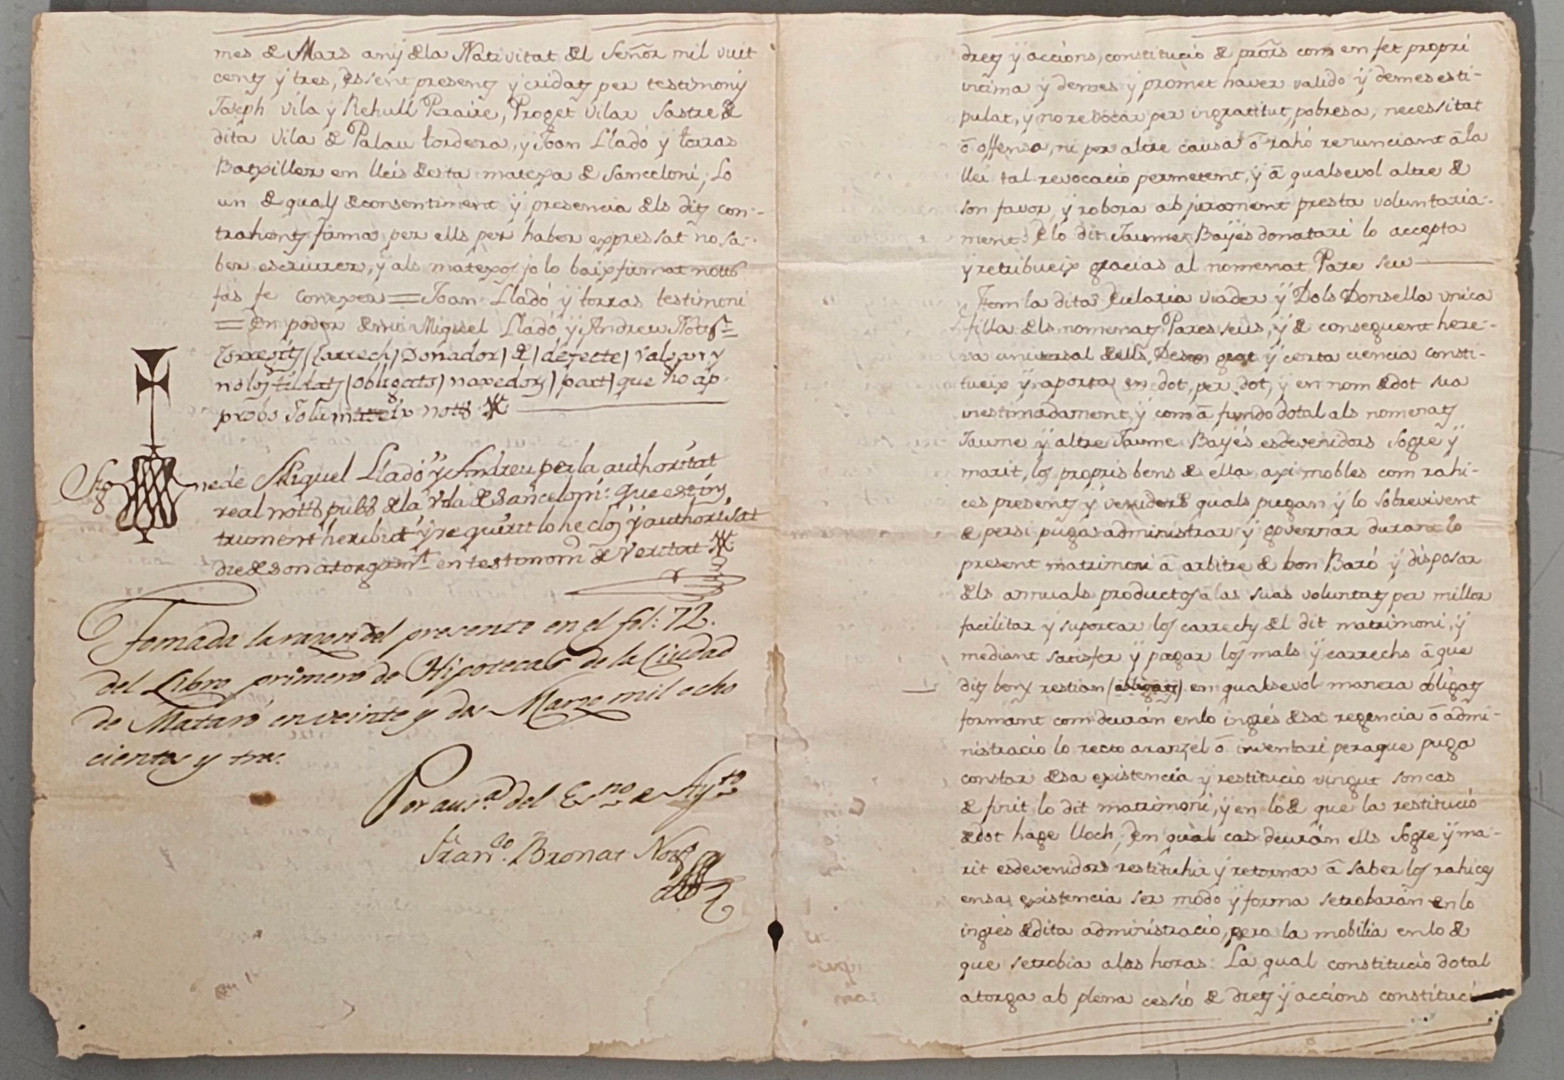 mes de Mars any de la Nativitat del Señor mil vuit
cents y tres, essent presents y cridats per testimonis
Joseph Vila y Rehull Peraire, Proget Vilar Sastre de
dita Vila de Palau tordera, y Joan Lladó y torras
Batxiller en lleis desta matexa de Sanceloni; Lo
un de quals de consentiment y presencia dels dits con-
trahents firma per ells per haber expressat no sa-
ber escriurer, y als matexos jo lo baix firmat notts
fas fe conexer = Joan Lladó y torras testimoni
= En poder de mi Miquel Lladó y Andreu Notts
Corregits (Carrech) Donador) de) defecte) valgan y
no los tildats (obligats) naxedors) part) que ho ap-
probo Jo lo mateix notts
Sig ne de Miquel Lladó y Andreu per la authoritat
real notts pubs de la Vila de Sanceloni: Que est ins
trument he rebut y requirit lo he clos y authorisat
die de son atorgamt. en testimoni de Veritat
Tomada la razon del presente en el fol: 72.
del Libro primero de Hipotecas de la Ciudad
de Mataró en veinte y dos Marzo mil ocho
cientos y tres.
Por ausa. del Esno. de Aytto.
Franco. Bronat Nots
drets y accions, constitució de prors com en fet propri
intima y demes y promet haver valido y demes esti-
pulat, y no revocar per ingratitut, pobresa, necessitat
ó offensa, ni per altre causa ó rahó renunciant á la
llei tal revocació permetent, y á qualsevol altre de
son favor y robora ab jurament presta voluntaria-
ment. E lo dit Jaume Bayés donatari lo accepta
y retribueix gracias al nomenat Pare seu
Item la dita Eularia Viader y Dols Donsella unica
filla dels nomenats Pares seus, y de conseguent here-
va universal dells, De son grat y certa ciencia consti-
tueix y aporta en dot, per dot, y en nom de dot sua
inestimadament, y com á fundo dotal als nomenats
Jaume y altre Jaume Bayés esdevenidors Sogre y
marit, los propris bens de ella axi mobles com rahi-
ces presents y venidors quals pugan y lo sobrevivent
de per si puga administrar y governar durant lo
present matrimoni á arbitre de bon Baró y disposar
dels annuals productos á las suas voluntats per millor
facilitar y suportar los carrechs del dit matrimoni, y
mediant satisfer y pagar los mals y carrechs á que
dits bens restian (obligats) en qualsevol manera obligats
formant com deuran en lo ingrés de sa regencia ó admi-
nistració lo recto aranzel ó inventari peraque puga
constar de sa existencia y restitució vingut son cas
de finit lo dit matrimoni, y en lo de que la restitució
de dot hage lloch, En qual cas deuran ells Sogre y ma-
rit esdevenidors restituhir y retornar á saber los rahices
en sa existencia ser modo y forma se trobarán en lo
ingrés de dita administració, pero la mobilia en lo de
que se trobia alas horas. La qual constitució dotal
atorga ab plena cessió de drets y accions constituci